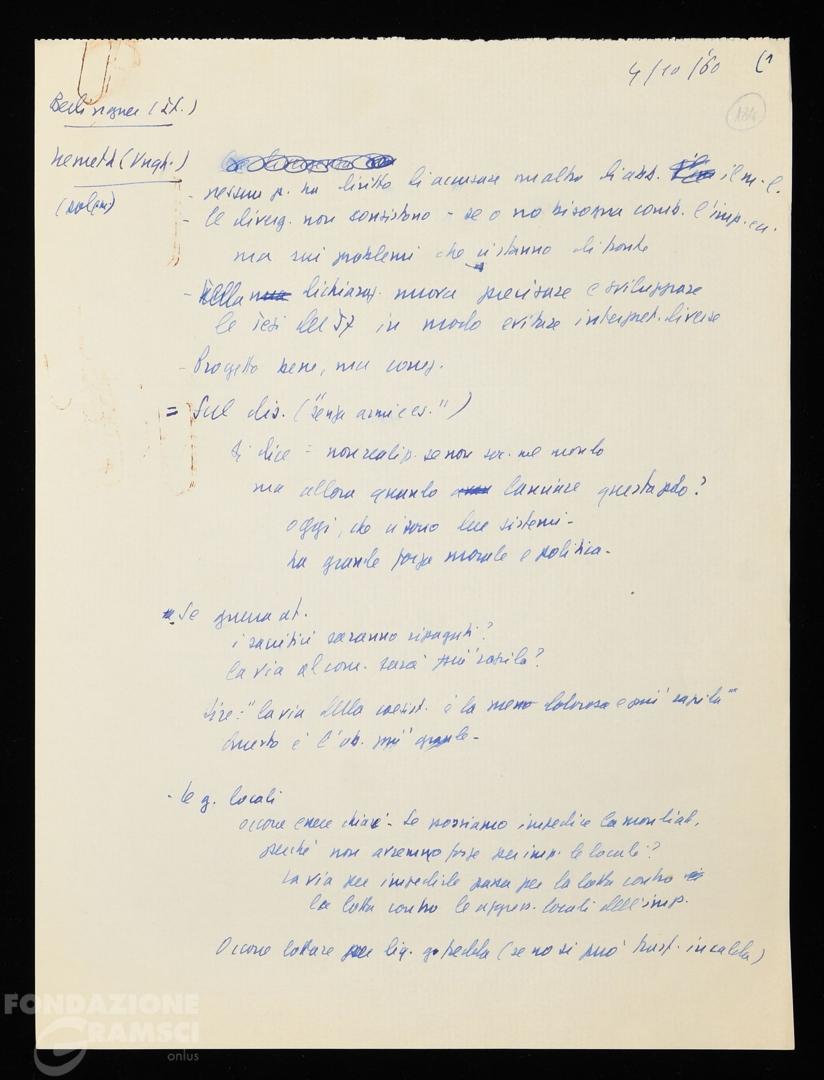 4/10/'60 (1
184
Berlinguer (It.)
Nemeth (Ungh.)
- nessun p. ha diritto di accusare un altro di abb. il m-l.
- le diverg. non consistono - se o no bisogna comb. l'imp.
ma sui problemi che ci stanno di fronte
- Nella dichiaraz. nuova precisare e sviluppare
le Tesi del 57 in modo evitare interpret. diverse
- Progetto bene, ma
= Sul dis. ("senza armi e es.")
Si dice = non realiz. se non soc. nel mondo
ma allora quando lanciare questa pdo?
oggi, che ci sono due sistemi -
ha grande forza morale e politica -
- Se guerra at.
i sacrifici saranno ripagati?
la via al com. sarà più rapida?
Dire: "la via della coesist. è la meno dolorosa e più rapida"
Questo è l'ob. più grande -
- le g. locali
Occorre essere chiari - Se possiamo impedire la mondiale,
perché non avremmo forze per imp. le locali?
La via per impedirle passa per la lotta contro
la lotta contro le aggress. locali dell'imp.
Occorre lottare per liq. g. fredda (se no si può trasf. in calda)
FONDAZIONE
GRAMSCI
onlus